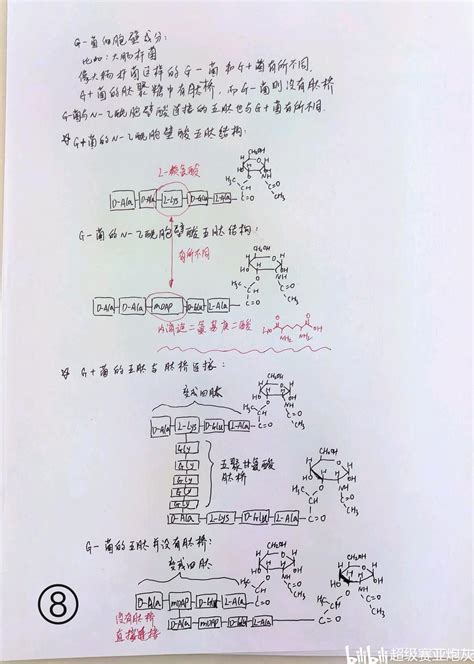 G-菌细胞壁成分:
比如:大肠杆菌
像大肠杆菌这样的G-菌和G+菌有所不同.
G+菌的肽聚糖中有肽桥,而G-菌则没有肽桥
G-菌与N-乙酰胞壁酸连接的五肽也与G+菌有所不同.
G+菌的N-乙酰胞壁酸五肽结构:
L-赖氨酸
D-Ala D-Ala L-Lys D-Glu L-Ala C=O
G-菌的N-乙酰胞壁酸五肽结构:
有所不同
D-Ala D-Ala mDAP D-Glu L-Ala C=O
内消旋二氨基庚二酸
G+菌的五肽与肽桥连接:
变成四肽
D-Ala L-Lys D-Glu L-Ala C=O
Gly
Gly
Gly
Gly
Gly
五聚甘氨酸
肽桥
D-Ala L-Lys D-Glu L-Ala C=O
G-菌的五肽并没有肽桥:
变成四肽
D-Ala mDAP D-Glu L-Ala C=O
没有肽桥
直接连接
D-Ala mDAP D-Glu L-Ala C=O
8
bilibili 超级赛亚炮灰